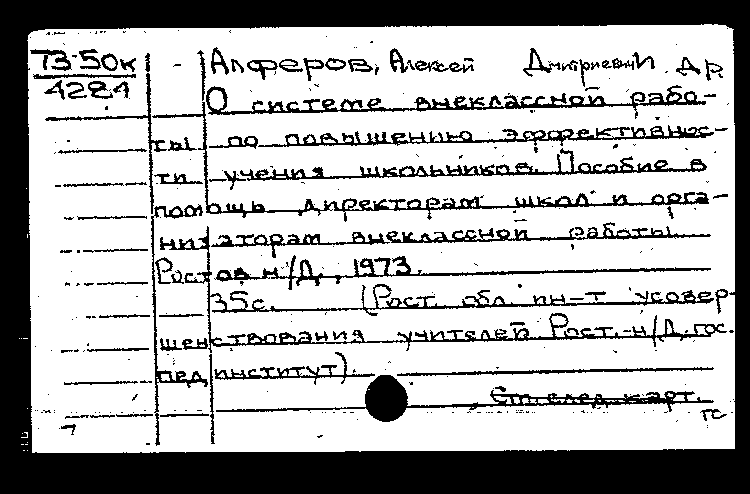 73-50к
4284
Алферов, Алексей Дмитриевич др.
О системе внеклассной рабо-
ты по повышению эффективнос-
ти учения школьников. Пособие в
помощь директорам школ и орга-
низаторам внеклассной работы.
Ростов н/Д, 1973.
35с. (Рост. обл. ин-т усовер-
шенствования учителей Рост.-н/Д. гос.
пед институт).
См. след. карт.
гс
7